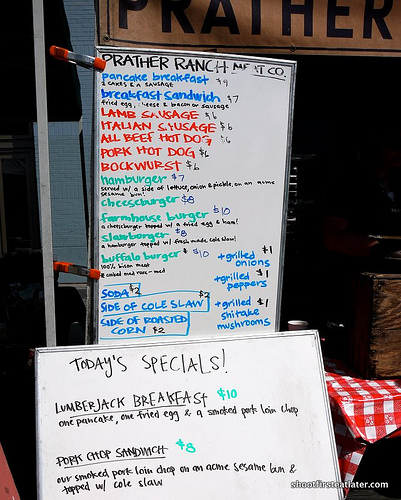 PRATHER
PRATHER RANCH MEAT CO.
pancake breakfast $9
2 CAKES & A SAUSAGE
breakfast sandwich $7
fried egg, cheese & bacon or sausage
LAMB SAUSAGE $6
ITALIAN SAUSAGE $6
ALL BEEF HOT DOG $6
PORK HOT DOG $6
BOCKWURST $6
hamburger $7
served w/ a side of lettuce, onion & pickle, on an acme
sesame bun!
cheeseburger $8
farmhouse burger $10
a cheeseburger topped w/ a fried egg & ham!
slawburger $8
a hamburger topped w/ fresh made cole slaw!
buffalo burger $10
100% bison meat
cooked med rare-med
+grilled $1
onions
+grilled $1
peppers
+grilled $1
shitake
mushrooms
SODA $2
SIDE OF COLE SLAW $2
SIDE OF ROASTED
CORN $2
TODAY'S SPECIALS!
LUMBERJACK BREAKFAST $10
one pancake, one fried egg & a smoked pork loin chop
PORK CHOP SANDWICH $8
our smoked pork loin chop on an acme sesame bun &
topped w/ cole slaw
shootfirsteatlater.com